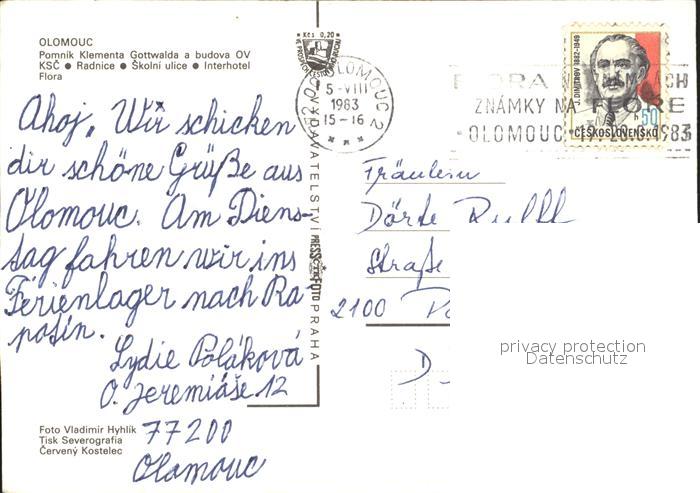 OLOMOUC
Pomník Klementa Gottwalda a budova OV
KSČ ● Radnice ● Školní ulice ● Interhotel
Flora
Ahoj, Wir schicken
dir schöne Grüße aus
Olomouc. Am Diens-
tag fahren wir ins
Ferienlager nach Ra-
potín.
Lydie Poláková
O. Jeremiáše 12
77200
Olomouc
Foto Vladimír Hyhlík
Tisk Severografia
Červený Kostelec
Kčs 0,20
VYDAVATELSTVÍ PRESSFOTO PRAHA
OLOMOUC 2
5-VIII
1983
15-16
ZNÁMKY NA FLOŘE
OLOMOUC
J. DIMITROV 1882-1949
50 h
ČESKOSLOVENSKO
Fräulein
Dörte
Straße
2100
D-
privacy protection
Datenschutz